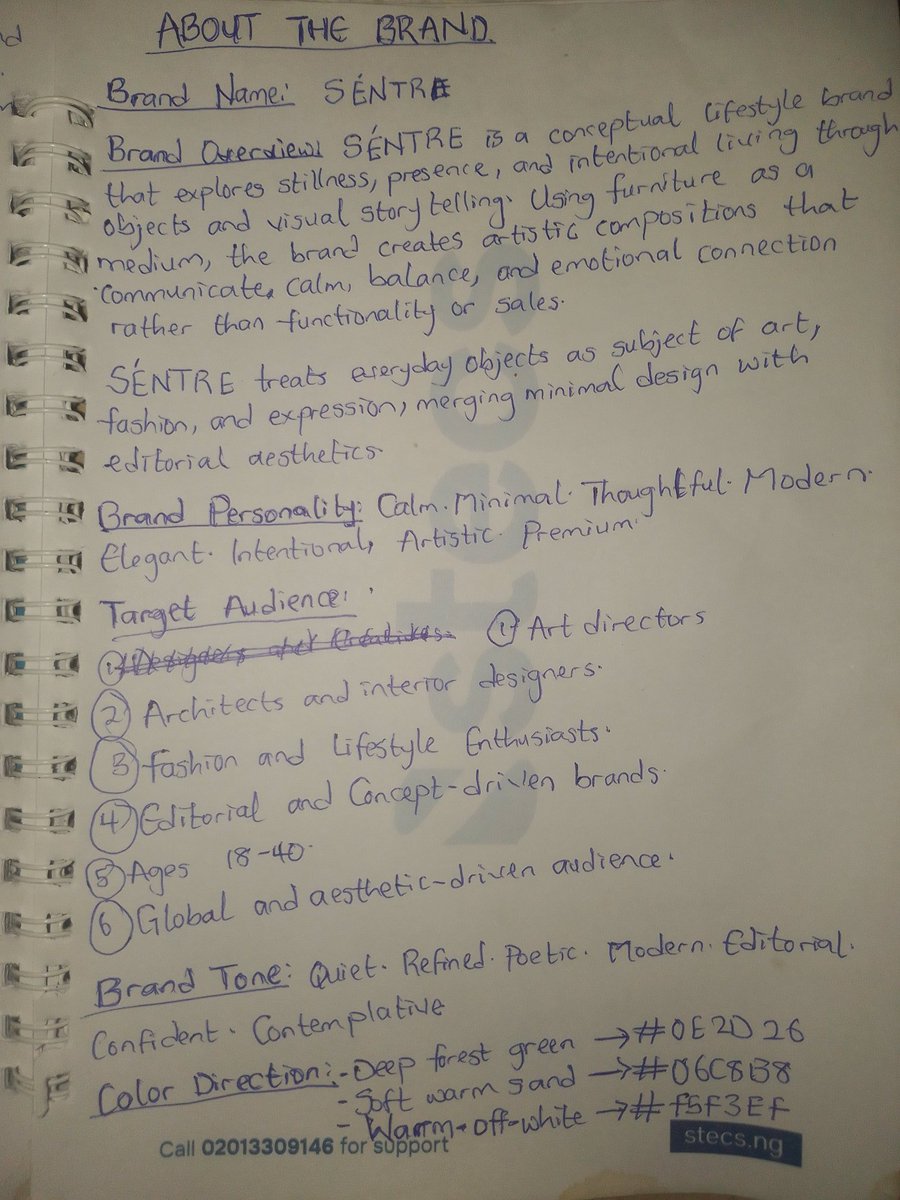 ABOUT THE BRAND.
Brand Name: SÉNTRE
Brand Overview: SÉNTRE is a conceptual lifestyle brand
that explores stillness, presence, and intentional living through
objects and visual storytelling. Using furniture as a
medium, the brand creates artistic compositions that
communicate, calm, balance, and emotional connection
rather than functionality or sales.
SÉNTRE treats everyday objects as subject of art,
fashion, and expression, merging minimal design with
editorial aesthetics.
Brand Personality: Calm. Minimal. Thoughtful. Modern.
Elegant. Intentional, Artistic. Premium.
Target Audience:
1 Designers and Creatives. 1 Art directors
2 Architects and interior designers.
3 fashion and Lifestyle Enthusiasts.
4 Editorial and Concept-driven brands.
5 Ages 18-40.
6 Global and aesthetic-driven audience.
Brand Tone: Quiet. Refined. Poetic. Modern. Editorial.
Confident. Contemplative
Color Direction: - Deep forest green → #0E2D26
- Soft warm sand → #D6C8B8
- Warm-off-white → #f5F3Ef
Call 02013309146 for support
stecs.ng
stecs